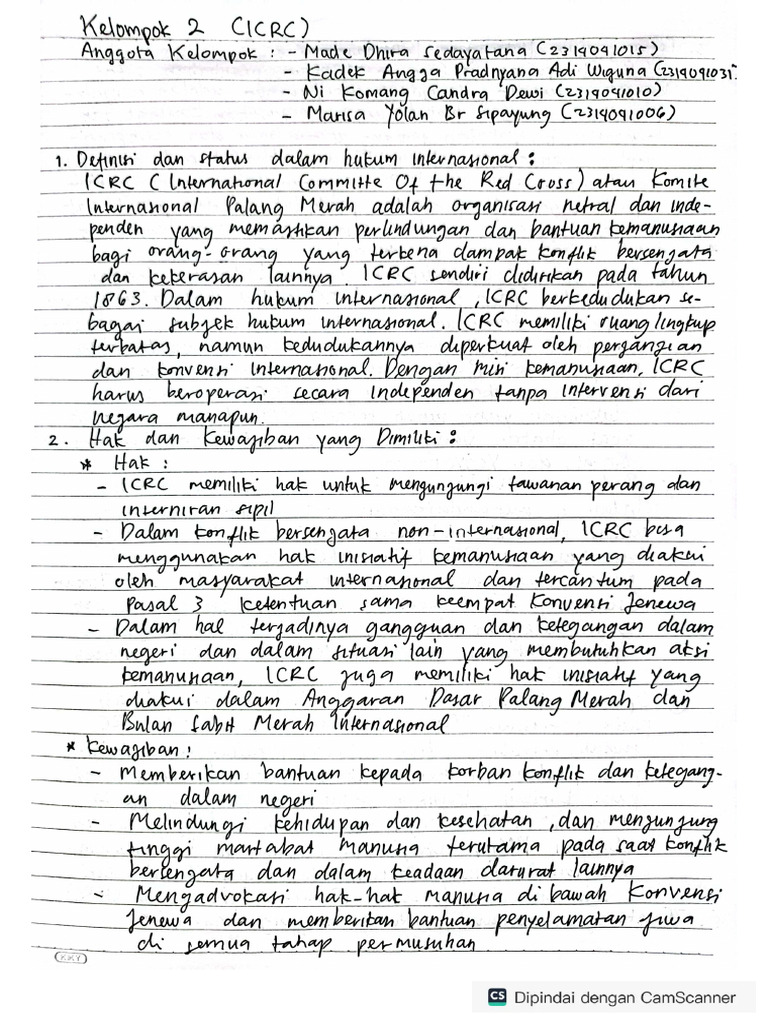 Kelompok 2 (ICRC)
Anggota Kelompok : - Made Dhira Sedayatana (2319091015)
- Kadek Angga Pradnyana Adi Wiguna (2319091031)
- Ni Komang Candra Dewi (2319091010)
- Marisa Yolan Br Sipayung (2319091006)
1. Definisi dan status dalam hukum internasional :
ICRC (International Committe Of the Red Cross) atau Komite
Internasional Palang Merah adalah organisasi netral dan inde-
penden yang memastikan perlindungan dan bantuan kemanusaan
bagi orang-orang yang terkena dampak konflik bersenjata
dan kekerasan lainnya. ICRC sendiri didirikan pada tahun
1863. Dalam hukum internasional, ICRC berkedudukan se-
bagai subjek hukum internasional. ICRC memiliki ruang lingkup
terbatas, namun kedudukannya diperkuat oleh perjanjian
dan konvensi internasional. Dengan misi kemanusaan, ICRC
harus beroperasi secara independen tanpa intervensi dari
negara manapun.
2. Hak dan Kewajiban yang Dimiliki :
* Hak :
- ICRC memiliki hak untuk mengunjungi tawanan perang dan
interniran sipil
- Dalam konflik bersenjata non-internasional, ICRC bisa
menggunakan hak inisiatif kemanusiaan yang diakui
oleh masyarakat internasional dan tercantum pada
Pasal 3 ketentuan sama keempat Konvensi Jenewa
- Dalam hal terjadinya gangguan dan ketegangan dalam
negeri dan dalam situasi lain yang membutuhkan aksi
kemanusiaan, ICRC juga memiliki hak inisiatif yang
diakui dalam Anggaran Dasar Palang Merah dan
Bulan Sabit Merah Internasional
* Kewajiban :
- Memberikan bantuan kepada korban konflik dan ketegang-
an dalam negeri
- Melindungi kehidupan dan kesehatan, dan menjunjung
tinggi martabat manusia terutama pada saat konflik
bersenjata dan dalam keadaan darurat lainnya
- Mengadvokasi hak-hak manusia di bawah Konvensi
Jenewa dan memberikan bantuan penyelamatan jiwa
di semua tahap permusuhan
KKY
CS Dipindai dengan CamScanner